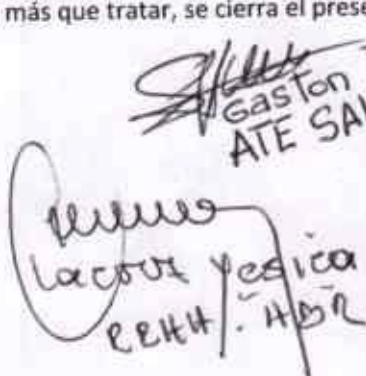 más que tratar, se cierra el prese
Gaston
ATE SA
Yesica
RRHH. HBR